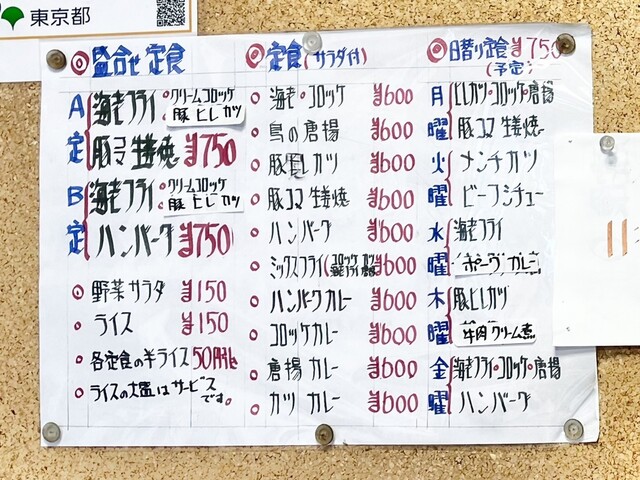 東京都
◎盛合せ定食
A定 海老フライ・クリームコロッケ
豚ヒレカツ
豚コマ生姜焼 ¥750
B定 海老フライ・クリームコロッケ
豚ヒレカツ
ハンバーグ ¥750
◎野菜サラダ ¥150
○ライス ¥150
○各定食の半ライス50円引
○ライスの大盛はサービスです。
◎定食(サラダ付)
○海老・コロッケ ¥600
○鳥の唐揚 ¥600
○豚ヒレカツ ¥600
○豚コマ生姜焼 ¥600
○ハンバーグ ¥600
○ミックスフライ ¥600
○ハンバーグカレー ¥600
○コロッケカレー ¥600
○唐揚カレー ¥600
○カツカレー ¥600
◎日替り定食¥750
(予定)
月曜 ヒレカツ・コロッケ・唐揚
豚コマ生姜焼
火曜 メンチカツ
ビーフシチュー
水曜 海老フライ
ポークカレー
木曜 豚ヒレカツ
牛肉クリーム煮
金曜 海老フライ・コロッケ・唐揚
ハンバーグ